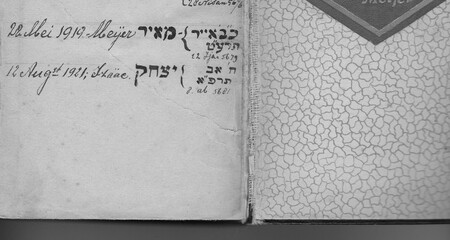 28 Mei 1919 Meijer מאיר } כ"ב אייר
תרע"ט
22 Ijar 5679
12 Augst 1921, יצחק } ח אב
תרפ"א
8 ab 5681